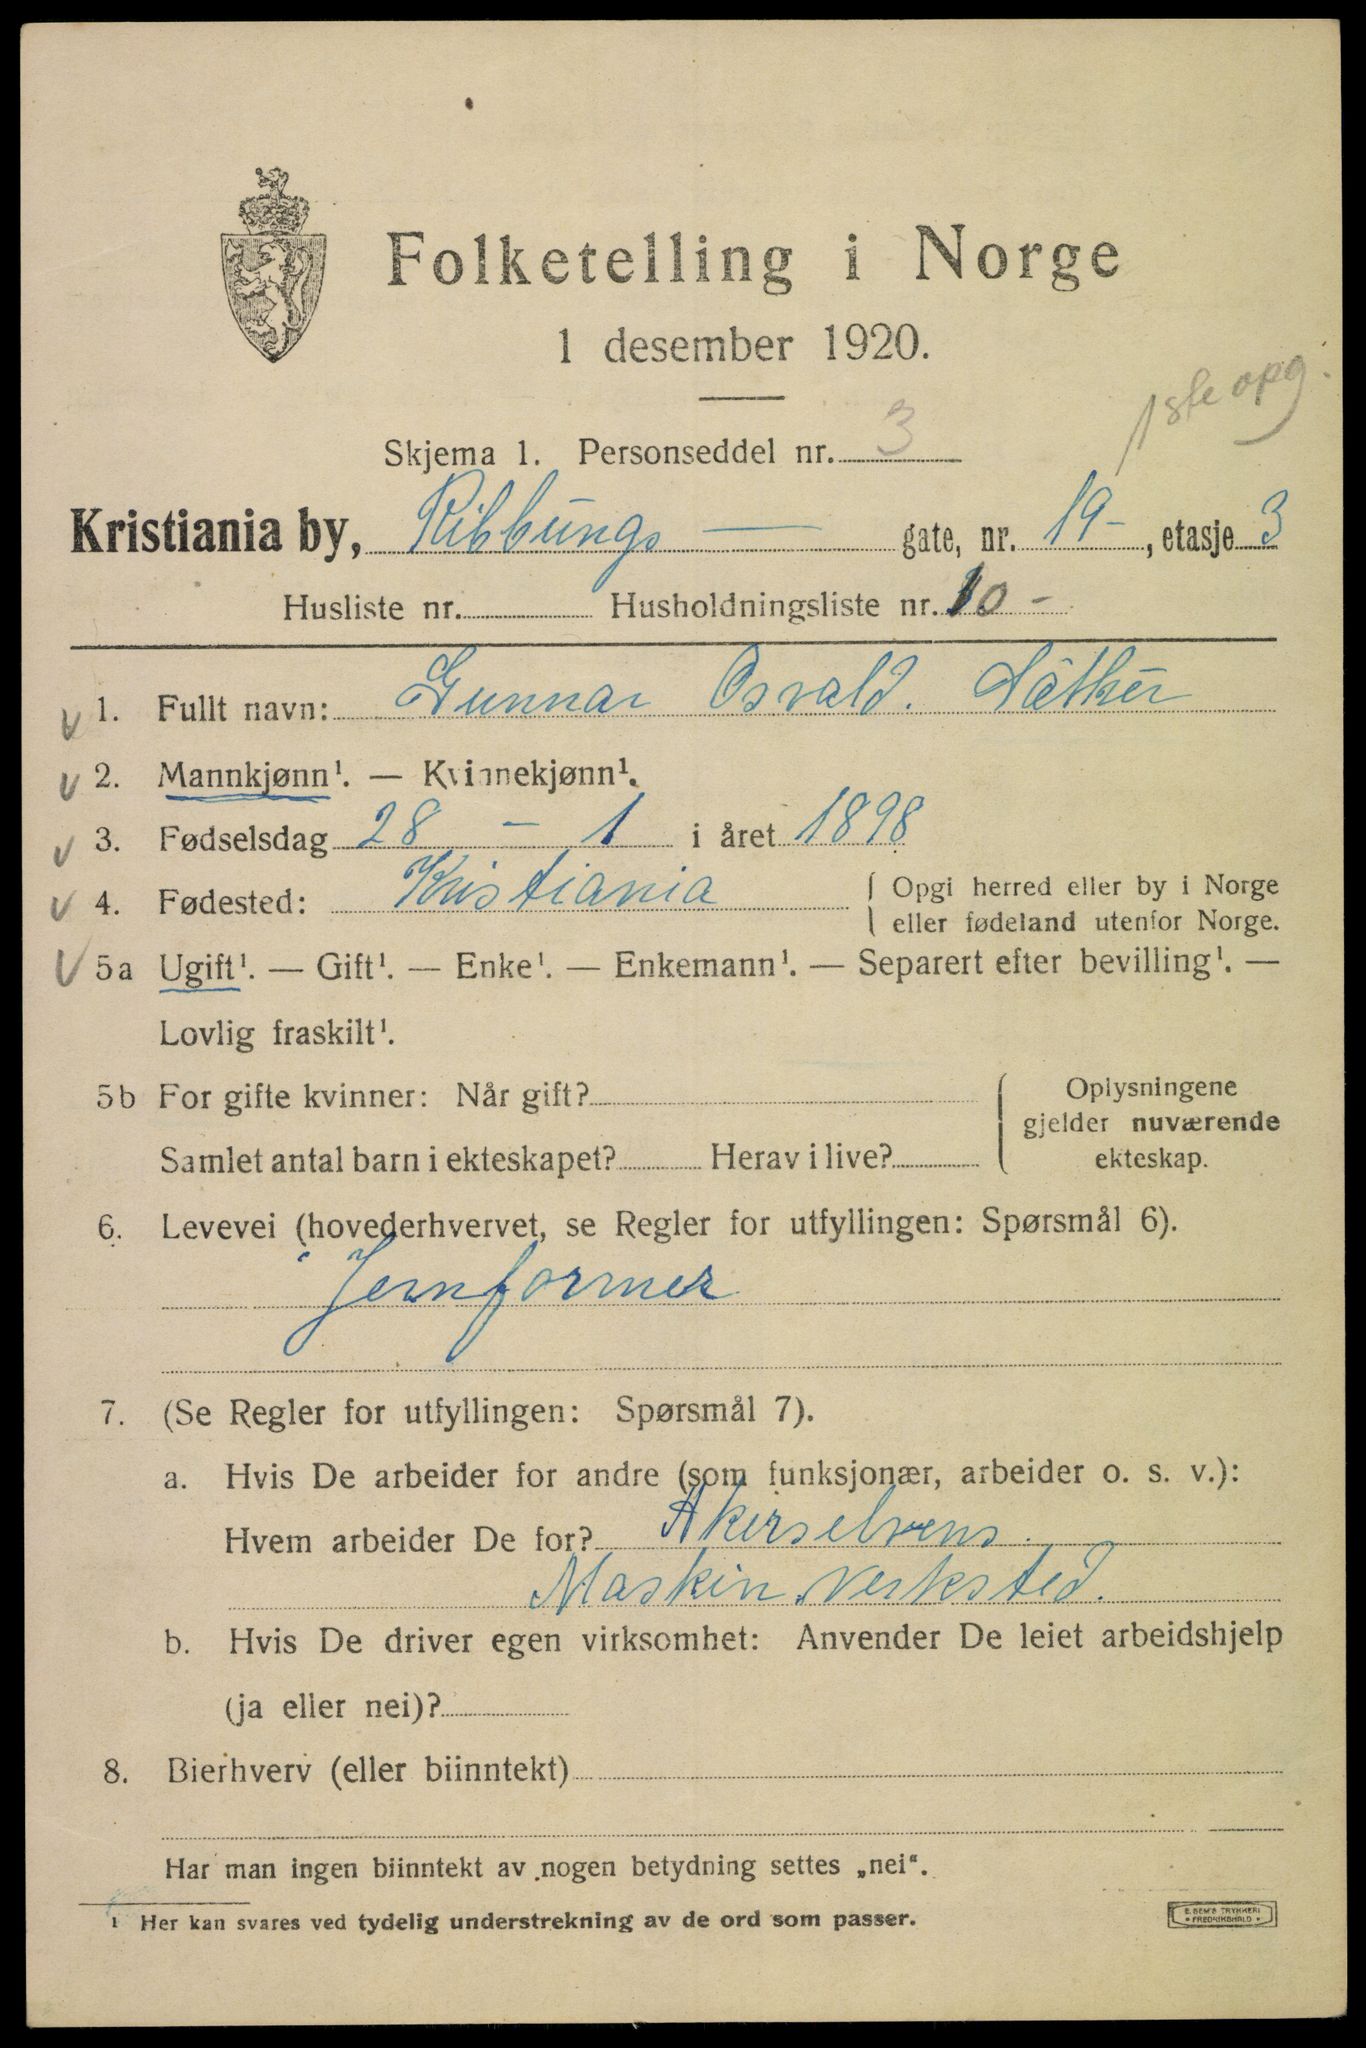 Folketelling i Norge
1 desember 1920.
1ste opg.
Skjema 1. Personseddel nr. 3
Kristiania by, Ribbungs — gate, nr. 19-, etasje 3
Husliste nr. Husholdningsliste nr. 10 -
1. Fullt navn: Gunnar Osvald. Säther
2. Mannkjønn¹. — Kvinnekjønn¹.
3. Fødselsdag 28 - 1 i året 1898
4. Fødested: Kristiania
Opgi herred eller by i Norge
eller fødeland utenfor Norge.
5a Ugift¹. — Gift¹. — Enke¹. — Enkemann¹. — Separert efter bevilling¹. —
Lovlig fraskilt¹.
5b For gifte kvinner: Når gift?
Samlet antal barn i ekteskapet? Herav i live?
Oplysningene
gjelder nuværende
ekteskap.
6. Levevei (hovederhvervet, se Regler for utfyllingen: Spørsmål 6).
Jernformer
7. (Se Regler for utfyllingen: Spørsmål 7).
a. Hvis De arbeider for andre (som funksjonær, arbeider o. s. v.):
Hvem arbeider De for? Akerselvens
Maskin. Verksted.
b. Hvis De driver egen virksomhet: Anvender De leiet arbeidshjelp
(ja eller nei)?
8. Bierhverv (eller biinntekt)
Har man ingen biinntekt av nogen betydning settes „nei“.
¹ Her kan svares ved tydelig understrekning av de ord som passer.
E. SEM'S TRYKKERI
• FREDRIKSHALD •